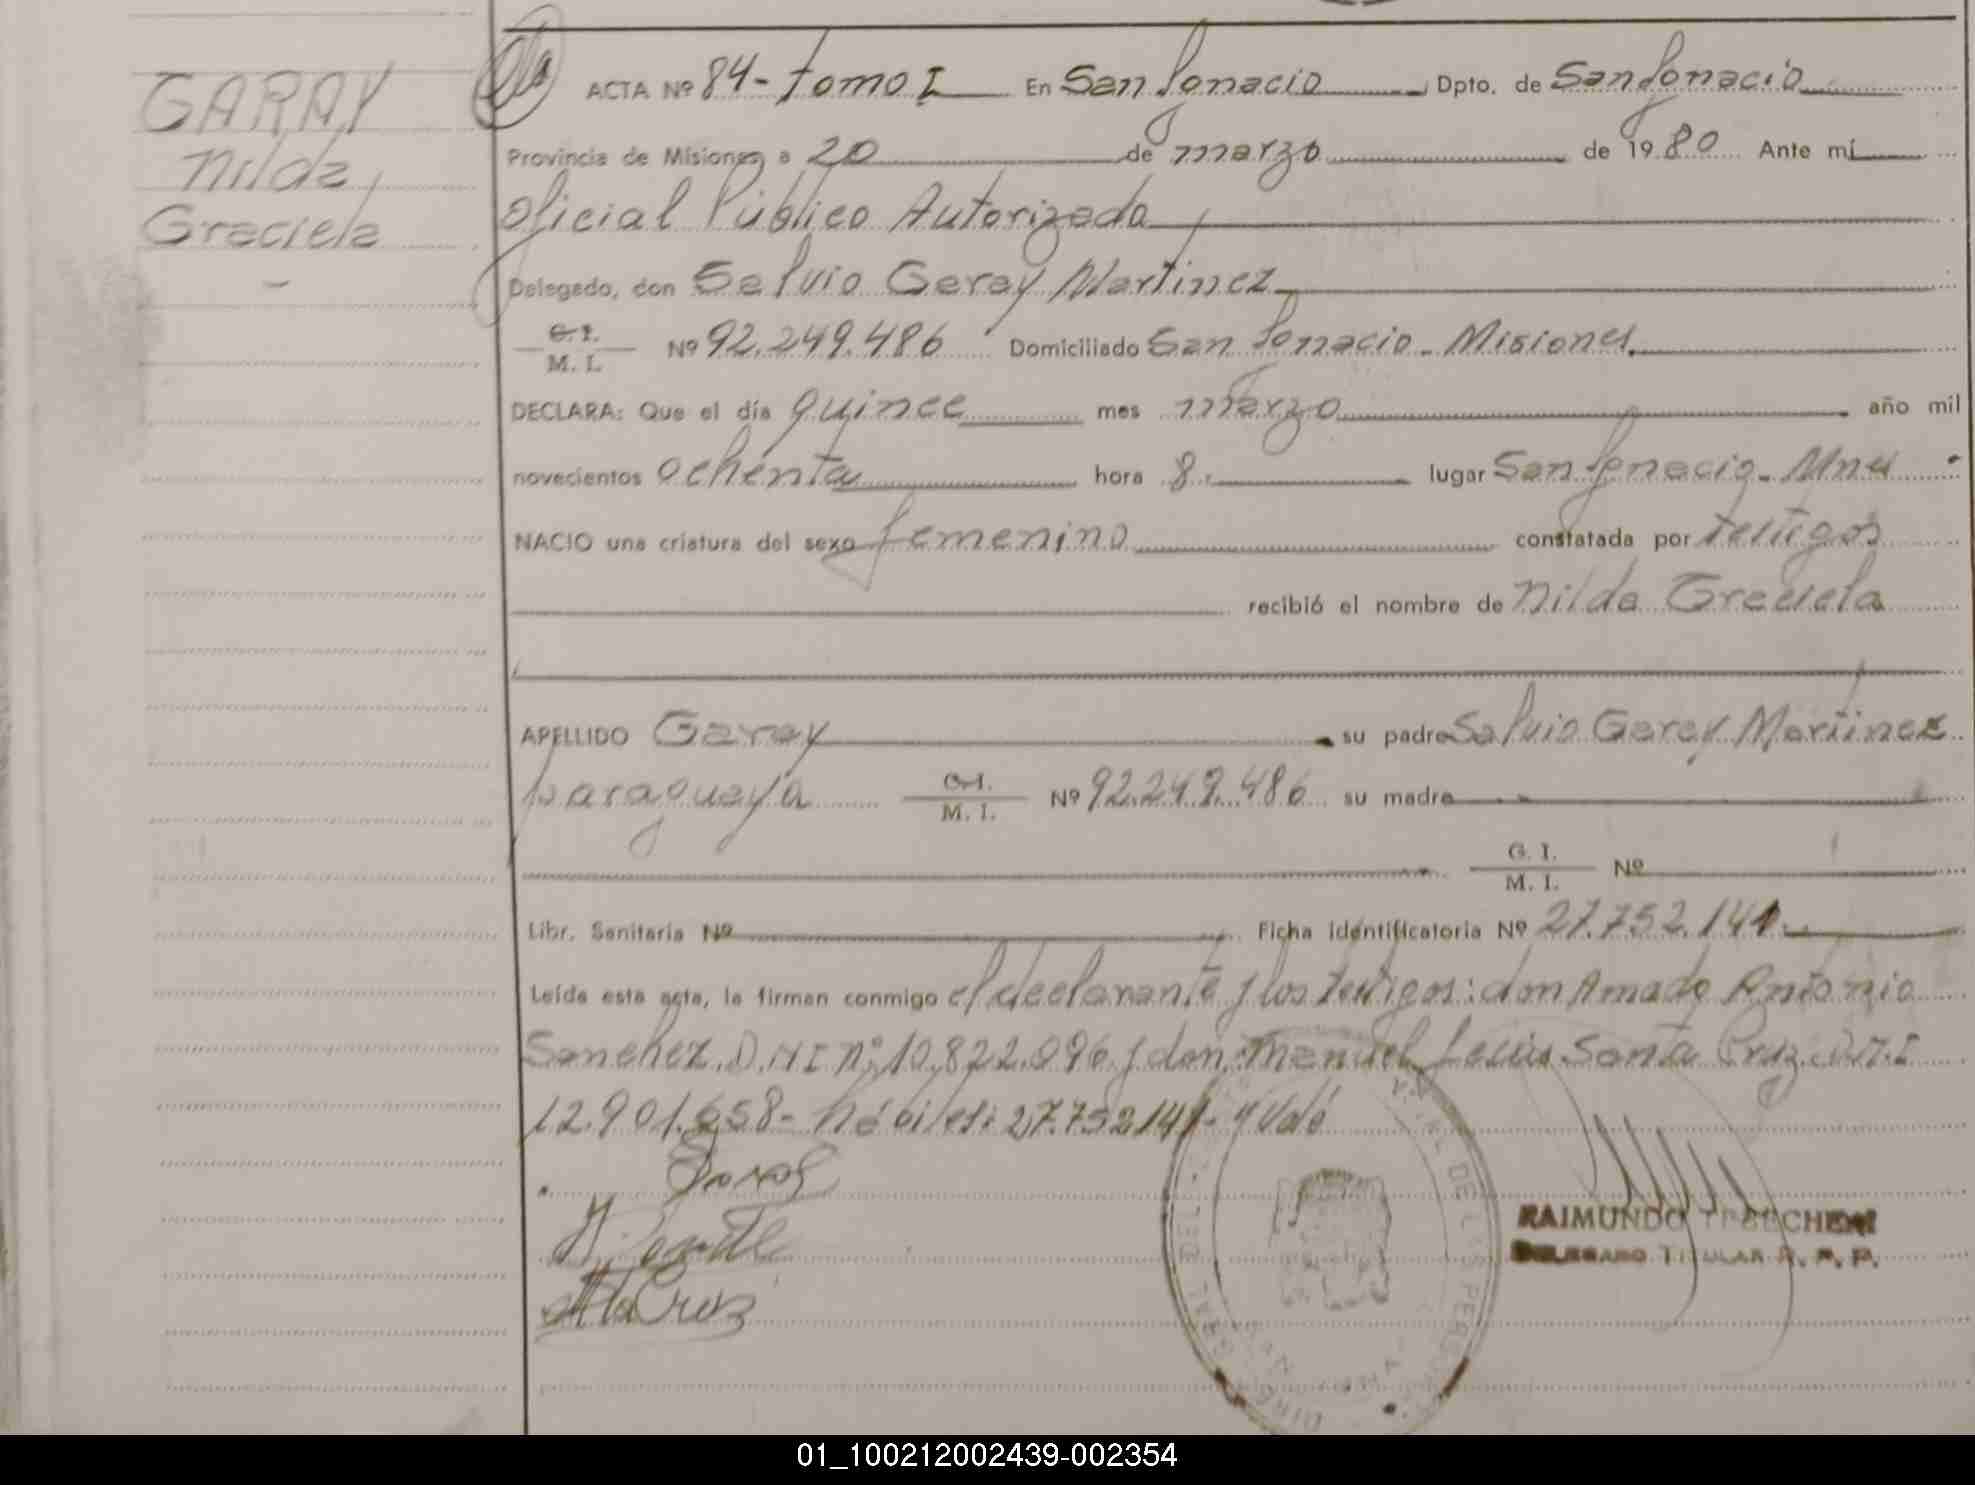 GARAY
Nilda
Graciela
ACTA Nº 84 - tomo I En San Ignacio Dpto. de San Ignacio
Provincia de Misiones a 20 de marzo de 1980 Ante mí
Oficial Público Autorizado
Delegado, don Salvio Garay Martinez
C. I. / M. I. Nº 92.249.486 Domiciliado San Ignacio - Misiones.
DECLARA: Que el día quince mes marzo año mil
novecientos ochenta hora 8.- lugar San Ignacio - Mnes
NACIO una criatura del sexo femenino constatada por testigos
recibió el nombre de Nilda Graciela
APELLIDO Garay su padre Salvio Garay Martinez
paraguaya C. I. / M. I. Nº 92.249.486 su madre
C. I. / M. I. Nº
Libr. Sanitaria Nº Ficha identificatoria Nº 27.752.141.
Leída esta acta, la firman conmigo el declarante y los testigos: don Amado Antonio
Sanchez D.N.I nº 10.822.096 y don Manuel Santa Cruz D.N.I
12.901.658 - 27.752141 - Vale
Garay
Cruz
RAIMUNDO
DELEGADO TITULAR R. P. P.
01_100212002439-002354